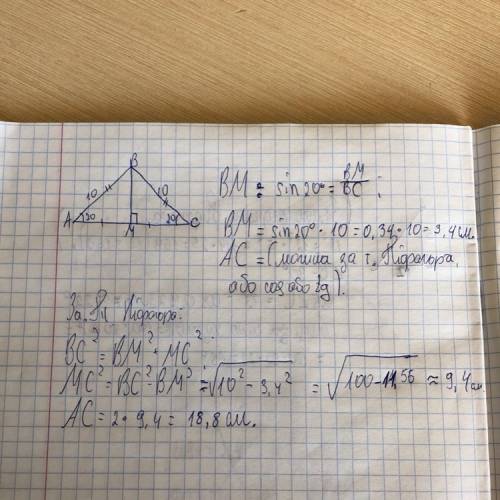 B
10 10
A 20 20 C
M
BM = sin20° = BM/BC ;
BM = sin20° · 10 = 0,34 · 10 = 3,4 см.
AC = (можна за т. Піфагора,
або cos або tg).
За т. Піфагора:
BC² = BM² + MC²
MC² = BC² - BM² = √10² - 3,4² = √100 - 11,56 ≈ 9,4 см.
AC = 2 · 9,4 = 18,8 см.